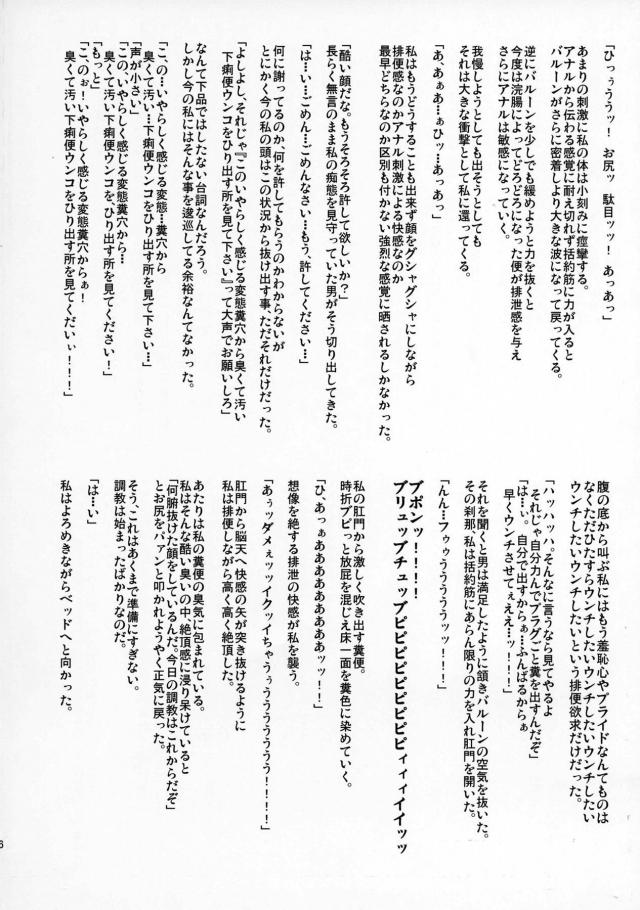 「ひっぅううッ！　お尻ッ　駄目ッッ！　あっあっ」
あまりの刺激に私の体は小刻みに痙攣する。
アナルから伝わる感覚に耐え切れず括約筋に力が入ると
バルーンがさらに密着しより大きな波になって戻ってくる。
逆にバルーンを少しでも緩めようと力を抜くと
今度は浣腸によってどろどろになった便が排泄感を与え
さらにアナルは敏感になっていく。
我慢しようとしても出そうとしても
それは大きな衝撃として私に還ってくる。
「あ、あぁあ…ぁひッ…あっあっ」
私はもうどうすることも出来ず顔をグシャグシャにしながら
排便感なのかアナル刺激による快感なのか
最早どちらなのか区別も付かない強烈な感覚に晒されるしかなかった。
「酷い顔だな。もうそろそろ許して欲しいか？」
長らく無言のまま私の痴態を見守っていた男がそう切り出してきた。
「は…い…ごめん…ごめんなさい…もう、許してください…」
何に謝ってるのか、何を許してもらうのかわからないが
とにかく今の私の頭はこの状況から抜け出す事、ただそれだけだった。
「よしよし、それじゃ『このいやらしく感じる変態糞穴から臭くて汚い
下痢便ウンコをひり出す所を見て下さい』って大声でお願いしろ」
なんて下品ではしたない台詞なんだろう。
しかし今の私にはそんな事を逡巡してる余裕なんてなかった。
「こ、の…いやらしく感じる変態…糞穴から
臭くて汚い…下痢便ウンコをひり出す所を見て下さい…」
「声が小さい」
「この、いやらしく感じる変態糞穴から…
臭くて汚い下痢便ウンコを、ひり出す所を見てください！」
「もっと」
「こ、のぉ！いやらしく感じる変態糞穴からぁ！
臭くて汚い下痢便ウンコをひり出す所を見てくだいぃ！！！」
腹の底から叫ぶ私にはもう羞恥心やプライドなんてものは
なくただひたすらウンチしたいウンチしたいウンチしたい
ウンチしたいウンチしたいという排便欲求だけだった。
「ハッハッハ。そんなに言うなら見てやるよ
それじゃ自分力んでプラグごと糞を出すんだぞ」
「は…ぃ。自分で出すからぁ…ふんばるからぁ
早くウンチさせてぇええ…ッ！！！」
それを聞くと男は満足したように頷きバルーンの空気を抜いた。
その刹那、私は括約筋にあらん限りの力を入れ肛門を開いた。
「んん…フゥゥうううううッッ！！！」
ブボンッ！！！！
ブリュップチュップビビビビビビビビビィィィイイッッ
私の肛門から激しく吹き出す糞便。
時折ブビっと放屁を混じえ床一面を糞色に染めていく。
「ひ、あっぁあああああああああッッ！！」
想像を絶する排泄の快感が私を襲う。
「あぅッダメぇッッイクッイちゃうぅうううううう！！！！」
肛門から脳天へ快感の矢が突き抜けるように
私は排便しながら高く高く絶頂した。
あたりは私の糞便の臭気に包まれている。
私はそんな酷い臭いの中、絶頂感に浸り呆けていると
「何腑抜けた顔をしているんだ。今日の調教はこれからだぞ」
とお尻をパァンと叩かれようやく正気に戻った。
そう、これはあくまで準備にすぎない。
調教は始まったばかりなのだ。
「は…い」
私はよろめきながらベッドへと向かった。
6